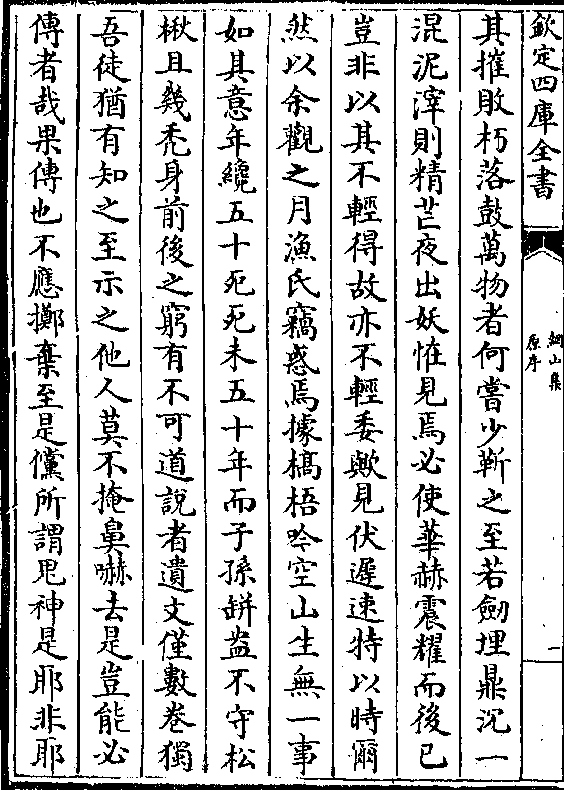 欽定四庫全書
網山集
原序
一
其摧敗朽落鼓萬物者何嘗少靳之至若劒埋鼎沉一
混泥滓則精芒夜出妖怪見焉必使華赫震耀而後已
豈非以其不輕得故亦不輕委歟見伏遲速特以時爾
然以余觀之月漁氏竊惑焉據槁梧吟空山生無一事
如其意年纔五十死死未五十年而子孫餅盎不守松
楸且幾禿身前後之窮有不可道說者遺文僅數卷獨
吾徒猶有知之至示之他人莫不掩鼻嚇去是豈能必
傳者哉果傳也不應擲棄至是儻所謂鬼神是耶非耶